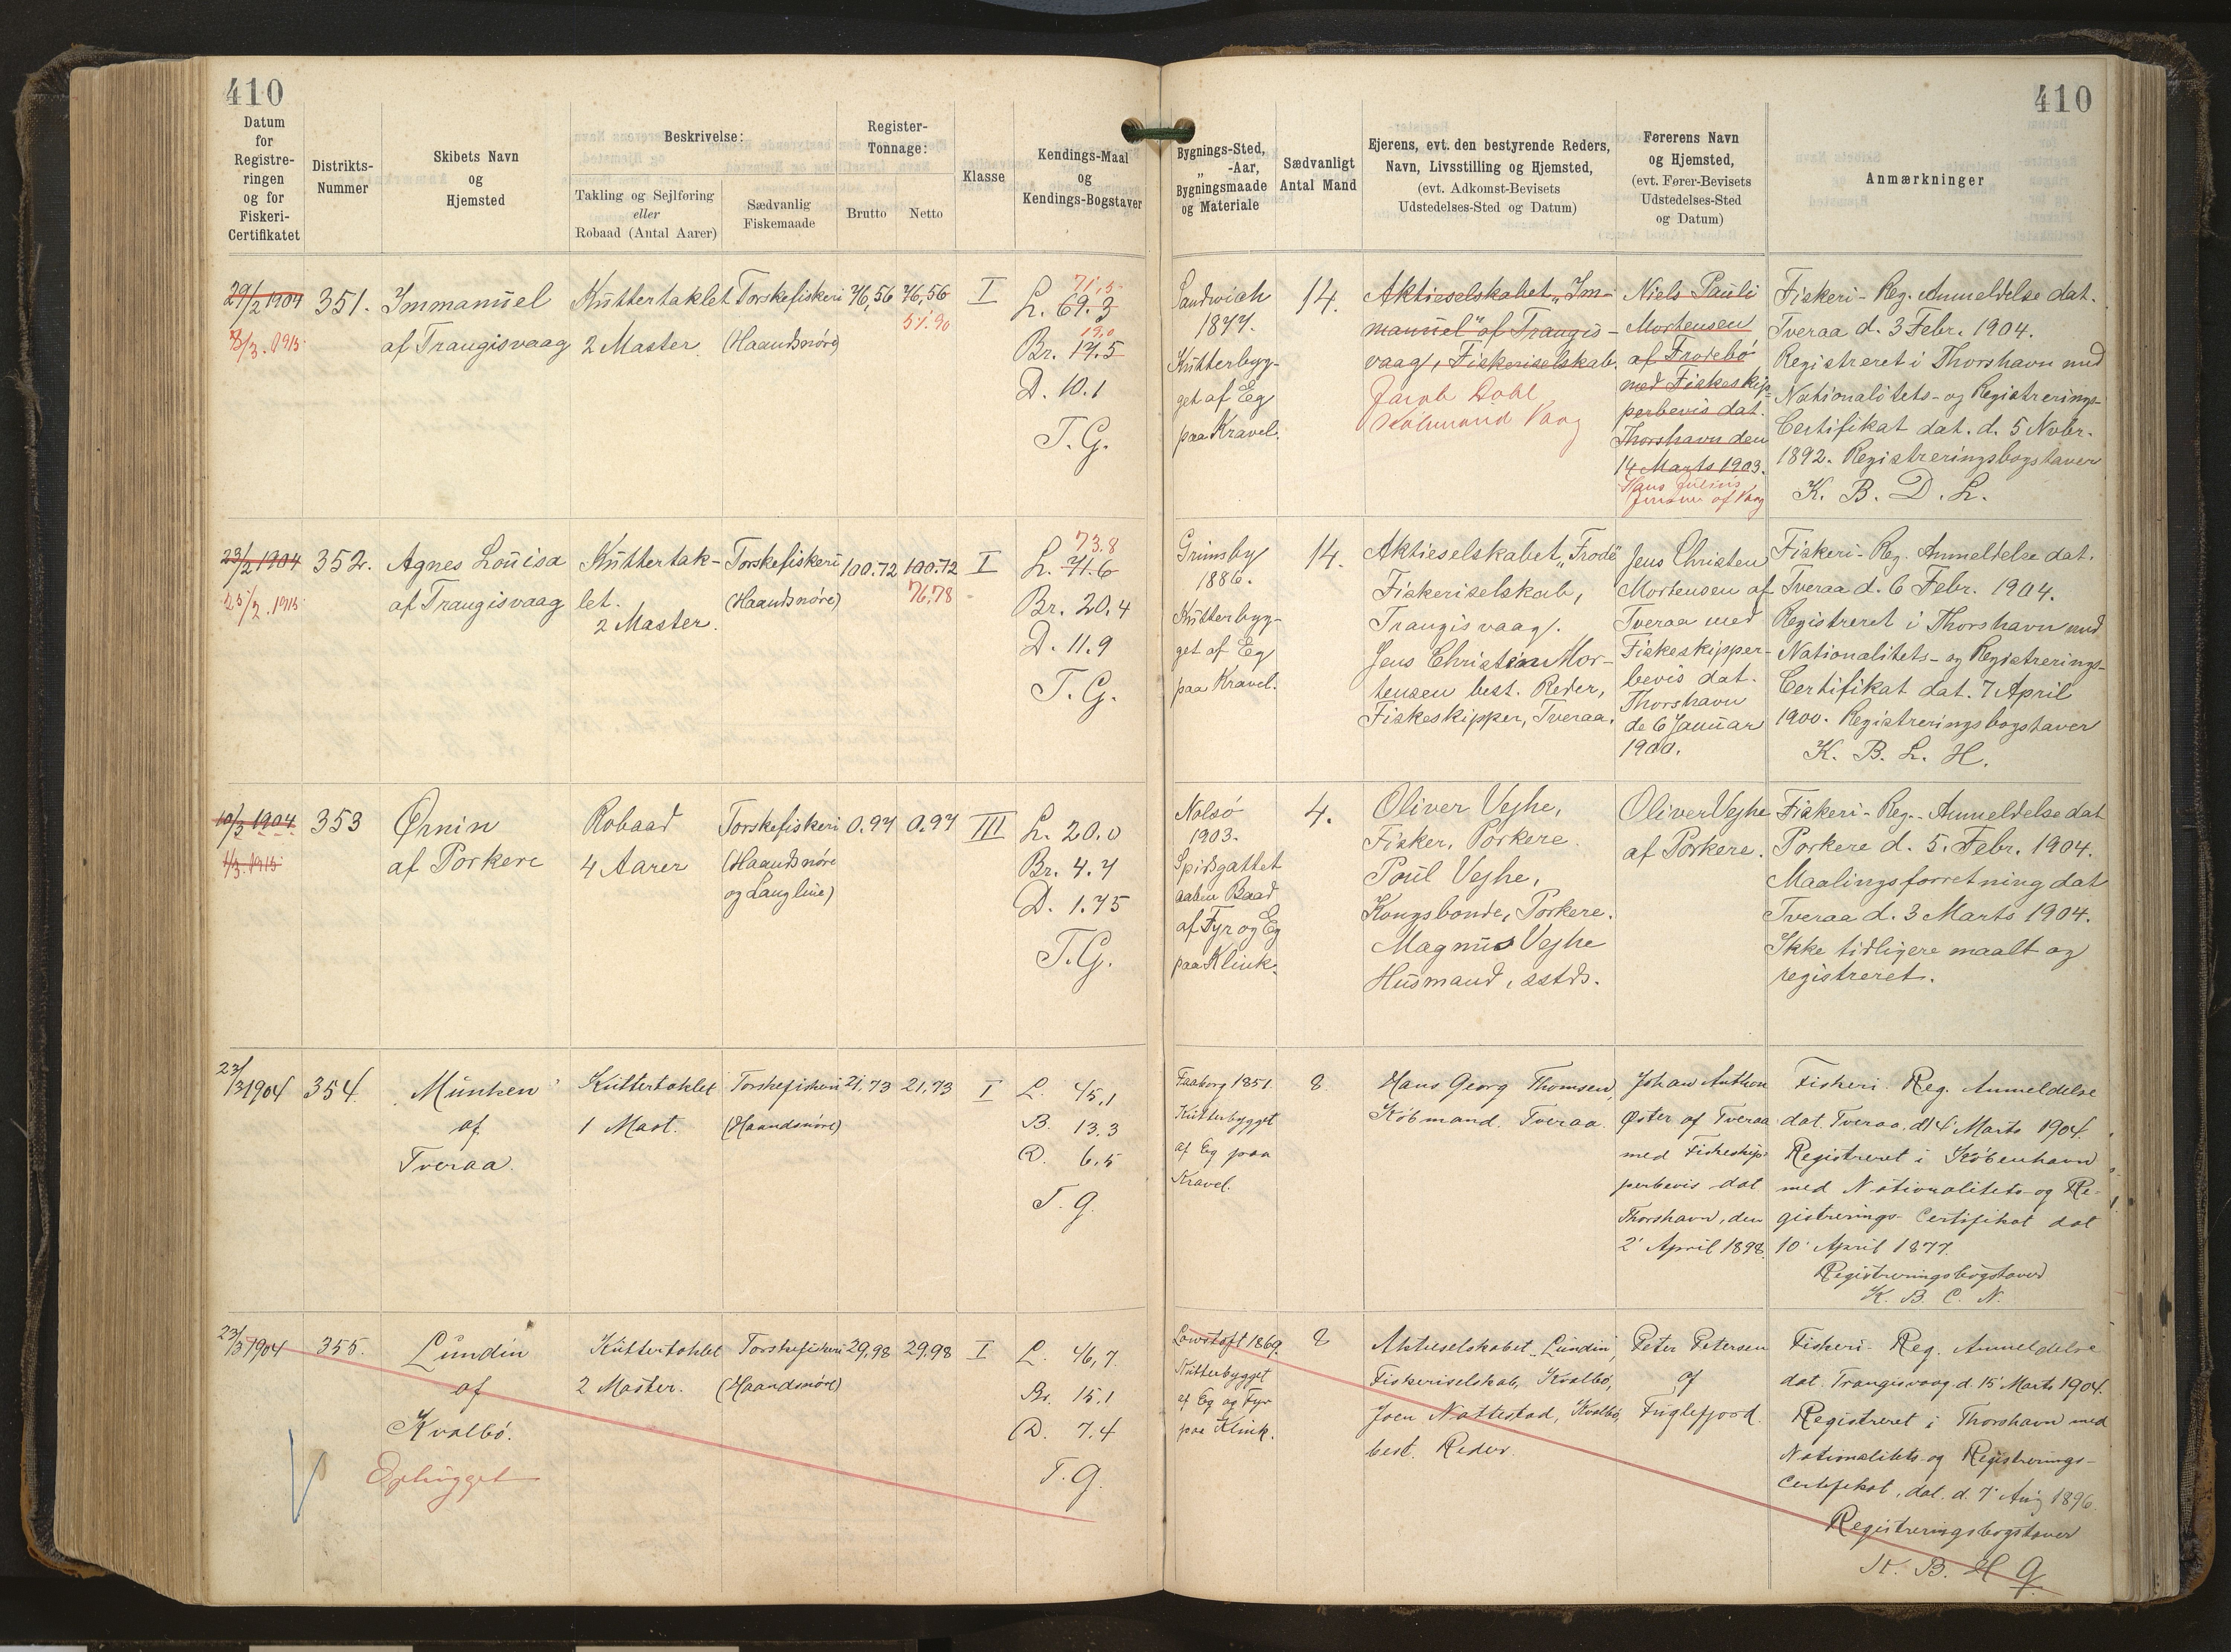 410
410
Datum
for
Registre-
ringen
og for
Fiskeri-
Certifikatet
Distrikts-
Nummer
Skibets Navn
og
Hjemsted
Beskrivelse:
Takling og Sejlføring
eller
Robaad (Antal Aarer)
Sædvanlig
Fiskemaade
Register-
Tonnage:
Brutto
Netto
Klasse
Kendings-Maal
og
Kendings-Bogstaver
Bygnings-Sted,
„ -Aar,
Bygningsmaade
og Materiale
Sædvanligt
Antal Mand
Ejerens, evt. den bestyrende Reders,
Navn, Livsstilling og Hjemsted,
(evt. Adkomst-Bevisets
Udstedelses-Sted og Datum)
Førerens Navn
og Hjemsted,
(evt. Fører-Bevisets
Udstedelses-Sted
og Datum)
Anmærkninger
29/2 1904
8/3. 1915.
351.
Immanuel
af Trangisvaag
Kuttertaklet
2 Master
Torskefiskeri
(Haandsnøre)
76,56
76,56
51.90
I
71,5
L. 69.3
19,0
Br. 17.5
D. 10.1
T.G.
Sandwich
1877.
Kutterbyg-
get af Eg
paa Kravel.
14.
Aktieselskabet „Im-
manuel" af Trangis-
vaag, Fiskeriselskab.
Jacob Dahl
Købmand Vaag
Niels Pauli
Mortensen
af Frodebö
med Fiskeskip-
perbevis dat.
Thorshavn den
14 Marts 1903.
Hans Julius
Jensen af Vaag
Fiskeri-Reg. Anmeldelse dat.
Tveraa d. 3 Febr. 1904.
Registreret i Thorshavn med
Nationalitets- og Registrerings-
Certifikat dat. d. 5 Nvbr.
1892. Registreringsbogstaver
K. B. D. L.
23/2 1904
25/2. 1915
352.
Agnes Louisa
af Trangisvaag
Kuttertak-
let.
2 Master.
Torskefiskeri
(Haandsnøre)
100.72
100.72
76,78
I
73.8
L. 71.6
Br. 20.4
D. 11.9
T.G.
Grimsby
1886.
Kutterbyg-
get af Eg
paa Kravel.
14.
Aktieselskabet „Frodö"
Fiskeriselskab,
Trangisvaag.
Jens Christian Mor-
tensen best. Reder,
Fiskeskipper, Tveraa.
Jens Christen
Mortensen af
Tveraa med
Fiskeskipper-
bevis dat.
Thorshavn
de 6 Januar
1900.
Fiskeri-Reg. Anmeldelse dat.
Tveraa d. 6 Febr. 1904.
Registreret i Thorshavn med
Nationalitets- og Registrerings-
Certifikat dat. 7 April
1900. Registreringsbogstaver
K. B. L. H.
10/3 1904.
1/3. 1915
353
Ørnin
af Porkere
Robaad
4 Aarer
Torskefiskeri
(Haandsnøre
og Langline)
0.97
0.97
III
L. 20.0
Br. 4.7
D. 1.75
T.G.
Nolsö
1903.
Spidsgattet
aaben Baad
af Fyr og Eg
paa Klink.
4.
Oliver Vejhe,
Fisker, Porkere.
Poul Vejhe,
Kongsbonde, Porkere.
Magnus Vejhe
Husmand, sstds.
Oliver Vejhe
af Porkere.
Fiskeri-Reg. Anmeldelse dat
Porkere d. 5. Febr. 1904.
Maalingsforretning dat
Tveraa d. 3 Marts 1904.
Ikke tidligere maalt og
registreret.
23/3 1904
354.
„Munken"
af
Tveraa.
Kuttertaklet
1 Mast.
Torskefiskeri
(Haandsnøre)
21,73
21,73
I
L. 45,1
B. 13.3
D. 6,5
T. G.
Faaborg 1851.
Kutterbygget
af Eg paa
Kravel.
8
Hans Georg Thomsen,
Købmand. Tveraa.
Johan Anthon
Øster af Tveraa
med Fiskeskip-
perbevis dat
Thorshavn, den
2' April 1898.
Fiskeri Reg. Anmeldelse
dat. Tveraa. d 14' Marts 1904.
Registreret i København
med Nationalitets- og Re-
gistrerings Certifikat dat
10' April 1877.
Registreringsbogstaver
K. B. C. N.
23/3 1904
355.
Lundin
af
Kvalbö.
Ophugget
Kuttertaklet
2 Master.
Torskefiskeri
(Haandsnøre)
29,98
29.98
I
L. 46,7
Br. 15.1
D. 7.4
T. G.
Lowstoft 1869.
Kutterbygget
af Eg og Fyr
paa Klink.
8
Aktieselskabet „Lundin",
Fiskeriselskab, Kvalbö,
Joen Nattestad, Kvalbö,
best. Reder.
Peter Petersen
af
Fuglefjord.
Fiskeri-Reg. Anmeldelse
dat. Trangisvaag d. 15' Marts 1904.
Registreret i Thorshavn med
Nationalitets og Registrerings-
Certifikat, dat. d. 7' Aug 1896.
Registreringsbogstaver
K. B. H G.